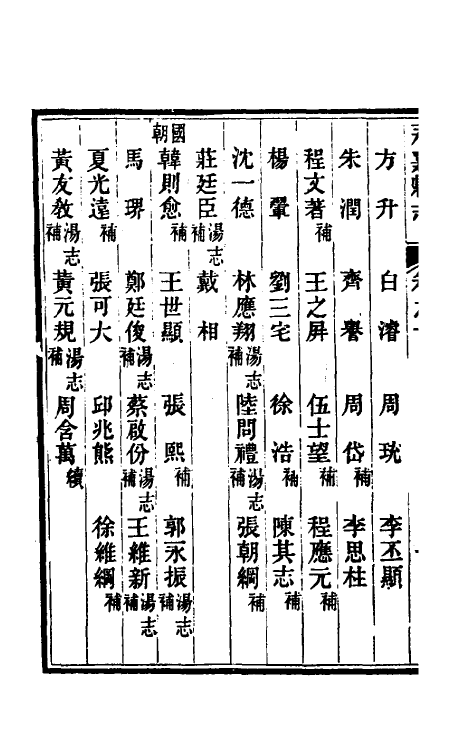 方升　白濬　周珫　李丕顯
朱潤　齊譽　周岱補　李思柱
程文著補　王之屏　伍士望補　程應元補
楊鞏　劉三宅　徐浩補　陳其志補
沈一德　林應翔湯志補　陸問禮湯志補　張朝綱補
莊廷臣湯志補　戴相
國朝
韓則愈補　王世顯　張熙補　郭永振湯志補
馬琾　鄭廷俊湯志補　蔡啟份湯志補　王維新湯志補
夏光遠補　張可大　邱兆熊　徐維綱補
黃友教湯志補　黃元規湯志補　周含萬續